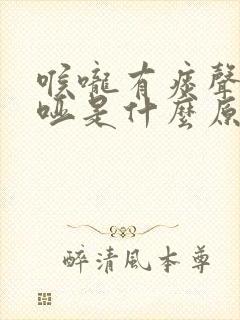 喉嚨有痰聲
啞是什麼原
醉清風本尊